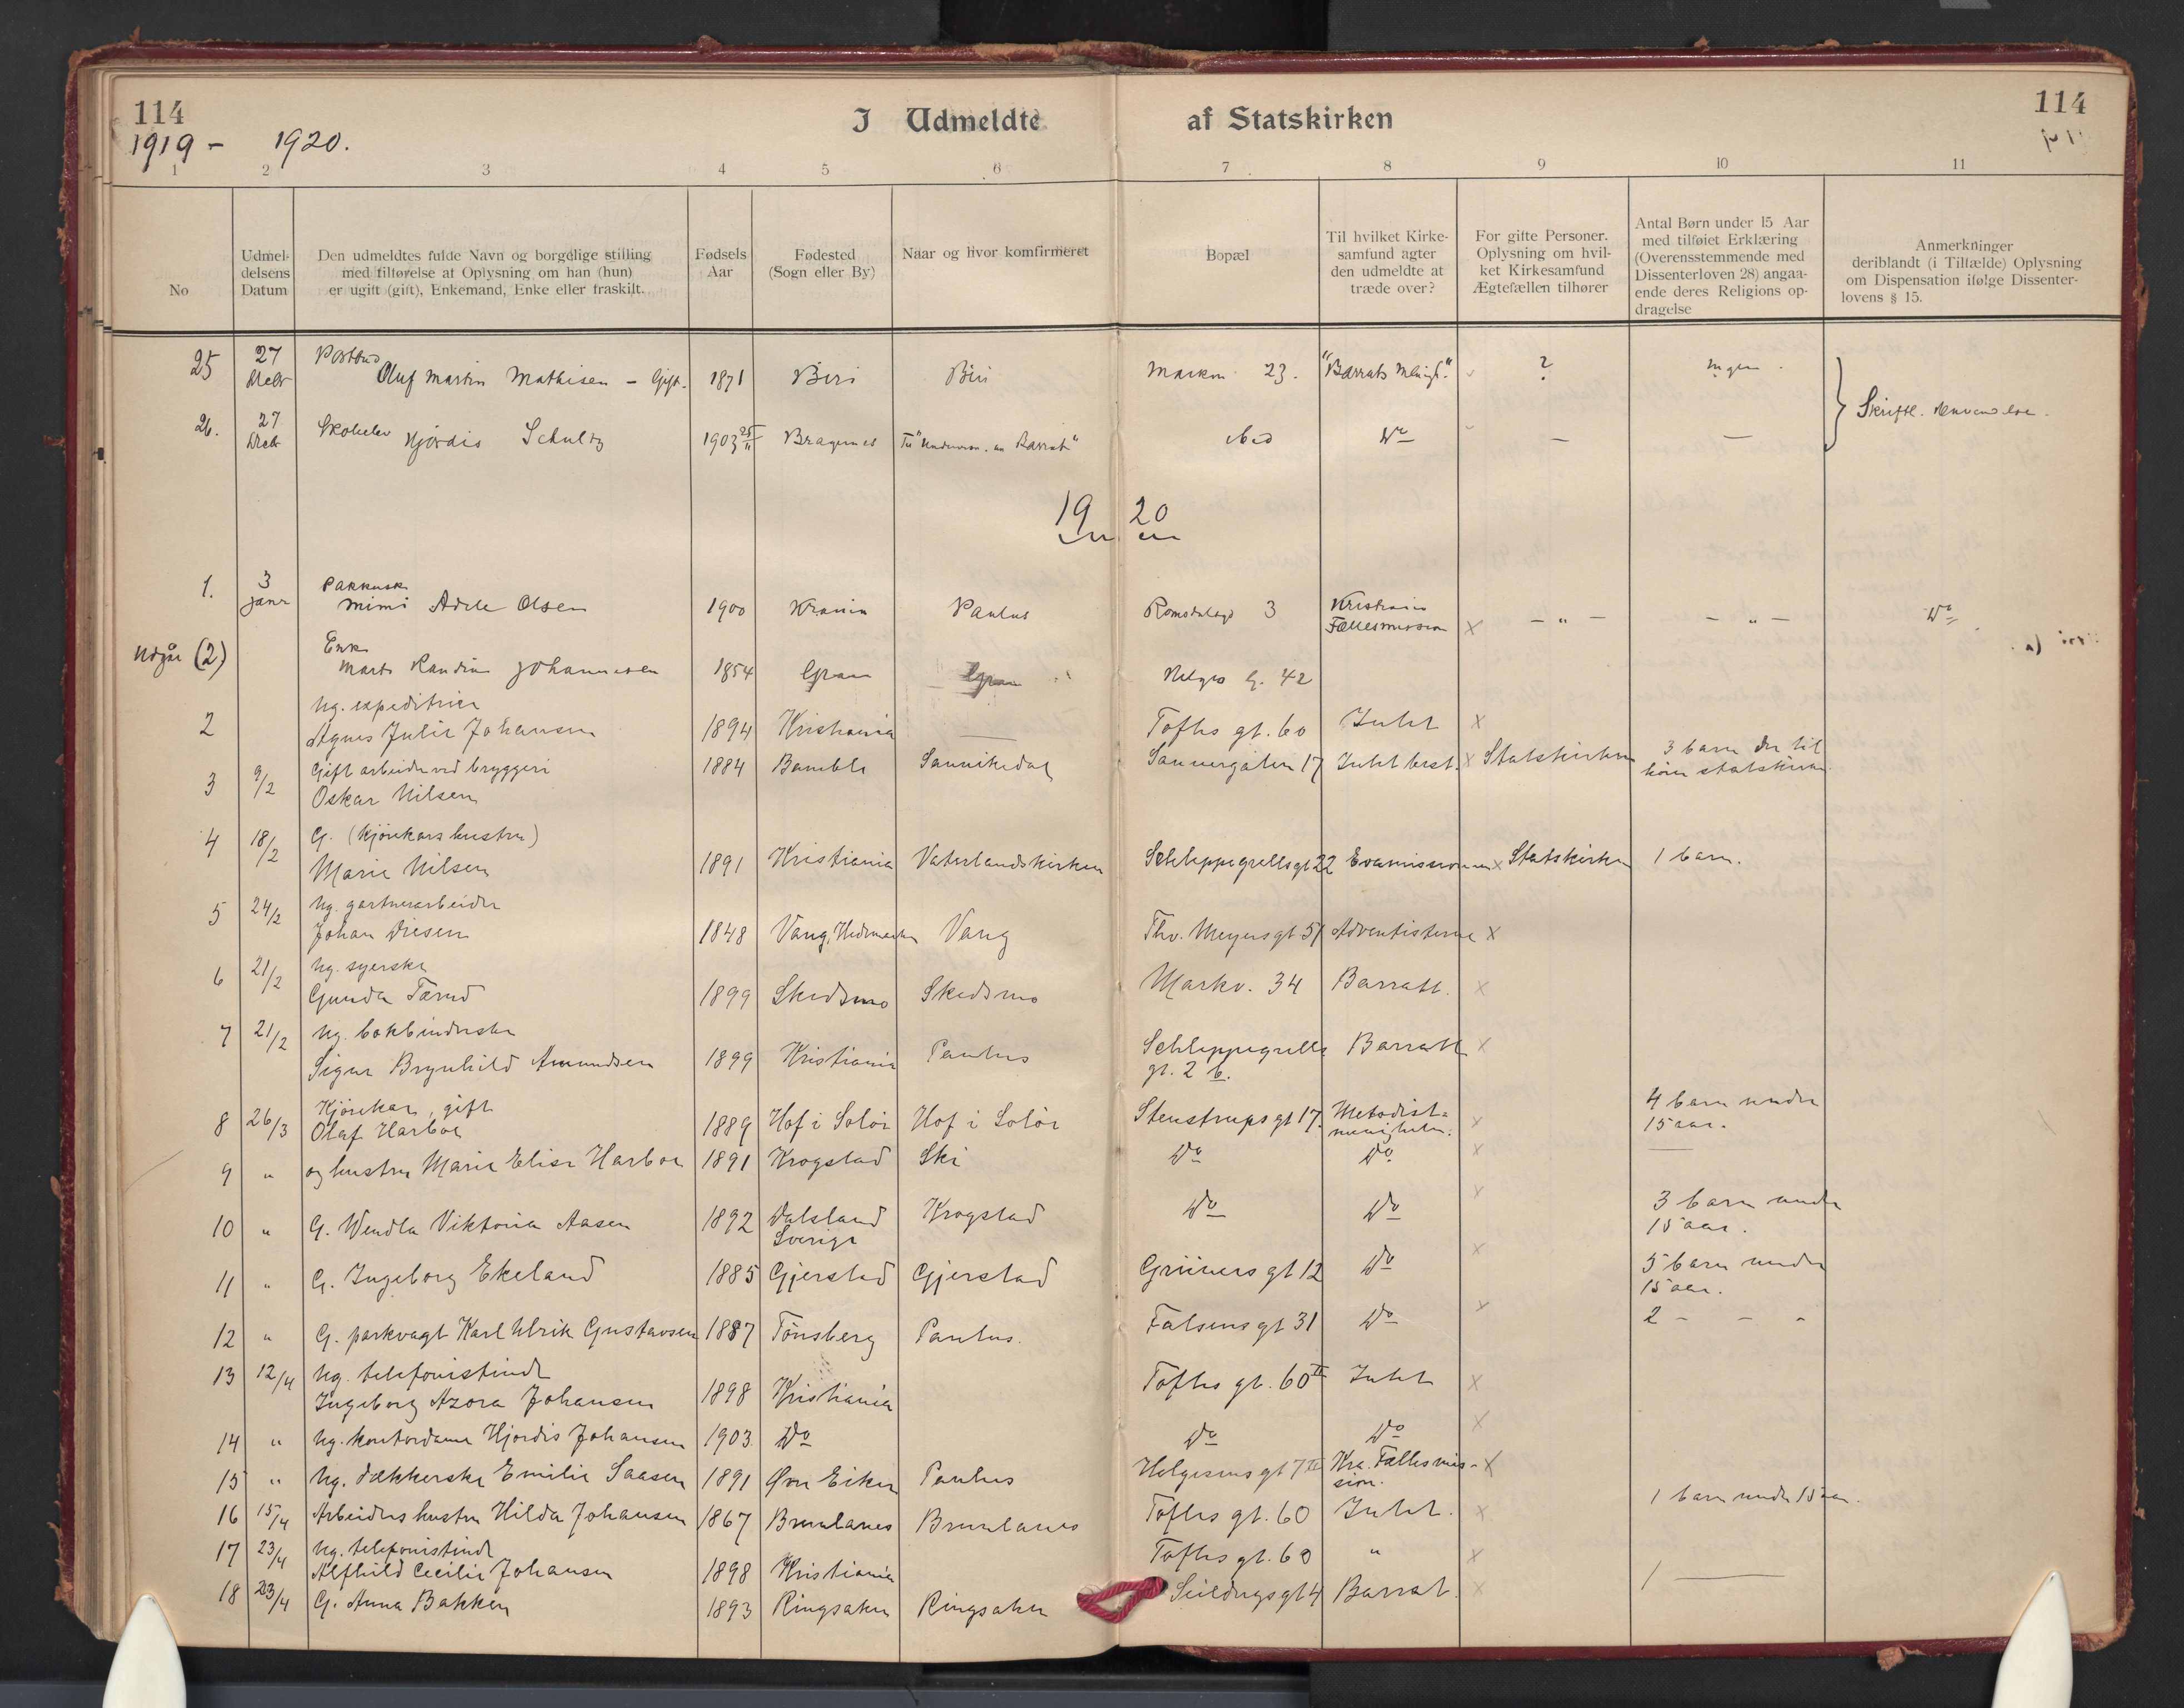 114
1919 - 1920.
I Udmeldte af Statskirken
114
1 2 3 4 5 6 7 8 9 10 11
No
Udmel-
delsens
Datum
Den udmeldtes fulde Navn og borgelige stilling
med tilførelse at Oplysning om han (hun)
er ugift (gift), Enkemand, Enke eller fraskilt.
Fødsels
Aar
Fødested
(Sogn eller By)
Naar og hvor komfirmeret
Bopæl
Til hvilket Kirke-
samfund agter
den udmeldte at
træde over?
For gifte Personer.
Oplysning om hvil-
ket Kirkesamfund
Ægtefællen tilhører
Antal Børn under 15 Aar
med tilføiet Erklæring
(Overensstemmende med
Dissenterloven 28) angaa-
ende deres Religions op-
dragelse
Anmerkninger
deriblandt (i Tilfælde) Oplysning
om Dispensation ifølge Dissenter-
lovens § 15.
25 27 Postbud
Oluf Martin Mathisen - Gift. 1871 Biri Biri Markv 23. "Barrats ? ingen.
26. 27 Hjørdis Schultz 1903 25/11 Bragernes Barrat" ibid Do — — Skriftl.
19 20
1. 3 janr Mimi Adele Olsen 1900 Krania Paulus Romsdalsgd 3 Kristiania
Fællesmission X - " - - " - Do
Udgår (2) Enke
Marte Randine Johannesen 1854 Gran Gran G. 42
2 Ug. expeditrice
Agnes Julie Johansen 1894 Kristiania — Toftes gt. 60 Intet X
3 9/2 Gift arbeider ved bryggeri
Oskar Nilsen 1884 Bamble Sannikedal Sannergaten 17 Intet best. X Statskirken 3 barn der til
hører statskirken
4 18/2 G. (Kjørekars hustru)
Marie Nilsen 1891 Kristiania Vaterlandskirken Schleppegrellsgt 22 Evamissionen X Statskirken 1 barn.
5 24/2 Ug. gartnerarbeider
Johan Diesen 1848 Vang, Hedemarken Vang Thv. Meyers gt 51 Adventisterne X
6 21/2 Ug. syerske
Gunda Tærud 1899 Skedsmo Skedsmo Markv. 34 Barratt. X
7 21/2 Ug. bokbinderske
Signe Brynhild Amundsen 1899 Kristiania Paulus Schleppegrells
gt. 2 b. Barratt X
8 26/3 Kjørekar, gift
Olaf Harboe 1889 Hof i Solør Hof i Solør Stenstrups gt 17. Metodist-
menigheten. X 4 barn under
15 aar.
9 " og hustru Marie Elise Harboe 1891 Krogstad Ski Do Do X —
10 " G. Wendla Viktoria Aasen 1892 Dalsland
Sverige Krogstad Do Do X 3 barn under
15 aar.
11 " G. Ingeborg Ekeland 1885 Gjerstad Gjerstad Grüners gt 12 Do X 5 barn under
15 aar.
12 " G. parkvagt Karl Ulrik Gustavsen 1887 Tønsberg Paulus. Falsens gt 31 Do X 2 - - -
13 12/4 Ug. telefonistinde
Ingeborg Azora Johansen 1898 Kristiania Toftes gt. 60 II Intet X
14 " Ug. kontordame Hjordis Johansen 1903 Do Do Do X
15 " Ug. dækkerske Emilie Saasen 1891 Øvre Eiker Paulus Helgesens gt 7 II Kra. Fællesmis-
sion. X
16 15/4 Arbeiders hustru Hilda Johansen 1867 Brunlanes Brunlanes Toftes gt. 60 Intet. X 1 barn under 15 aar.
17 23/4 Ug. telefonistinde
Alfhild Cecilie Johansen 1898 Kristiania Toftes gt. 60 " X
18 23/4 G. Anna Bakken 1893 Ringsaker Ringsaker Seildugsgt 4 Barrat. X 1 —